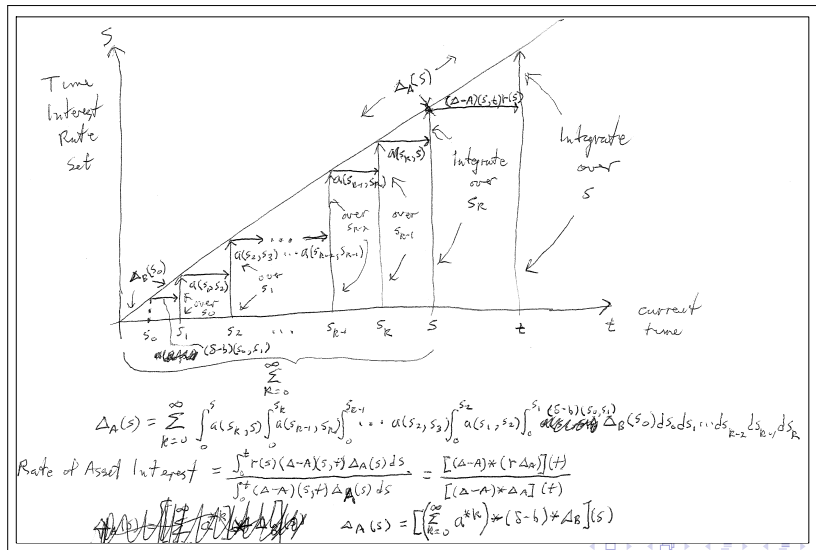 S
Time
Interest
Rate
Set
Δ_A(s)
(Δ-A)(s,t)r(s)
a(s_k,s)
a(s_{k-1},s_k)
over s_{k-2}
over s_{k-1}
integrate over s_k
Integrate over s
Δ_B(s_0)
a(s_1,s_2)
over s_0
a(s_2,s_3) ... a(s_{k-2},s_{k-1})
over s_1
s_0 s_1 s_2 ... s_{k-1} s_k s t
t
current
time
(δ-b)(s_0,s_1)
∑_{k=0}^{∞}
Δ_A(s) = ∑_{k=0}^{∞} ∫_0^s a(s_k,s) ∫_0^{s_k} a(s_{k-1},s_k) ∫_0^{s_{k-1}} ... a(s_2,s_3) ∫_0^{s_2} a(s_1,s_2) ∫_0^{s_1} (δ-b)(s_0,s_1) Δ_B(s_0) ds_0 ds_1 ... ds_{k-2} ds_{k-1} ds_k
Rate of Asset Interest = ∫_0^t r(s) (Δ-A)(s,t) Δ_A(s) ds / ∫_0^t (Δ-A)(s,t) Δ_A(s) ds = [(Δ-A)*(rΔ_A)](t) / [(Δ-A)*Δ_A](t)
Δ_A(s) = [(∑_{k=0}^{∞} a^{*k}) * (δ-b) * Δ_B](s)